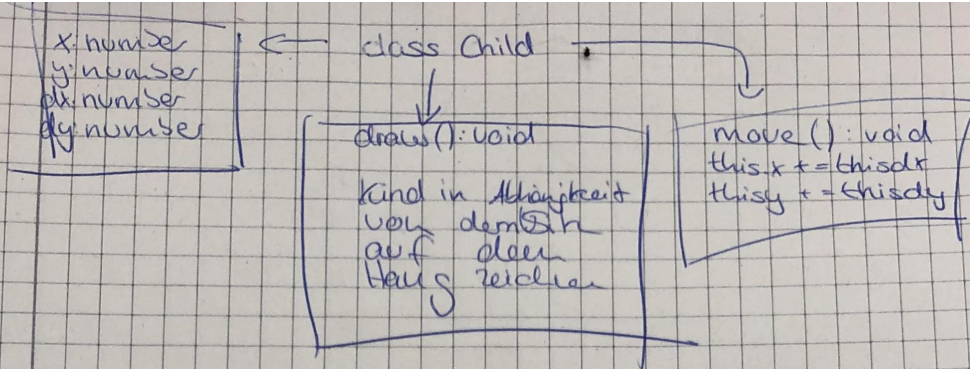 class Child
x: number
y: number
dx: number
dy: number
draw(): void
Kind in Abhängigkeit
von dem
auf dem
Haus zeichen
move(): void
this.x += thisdx
thisy += thisdy